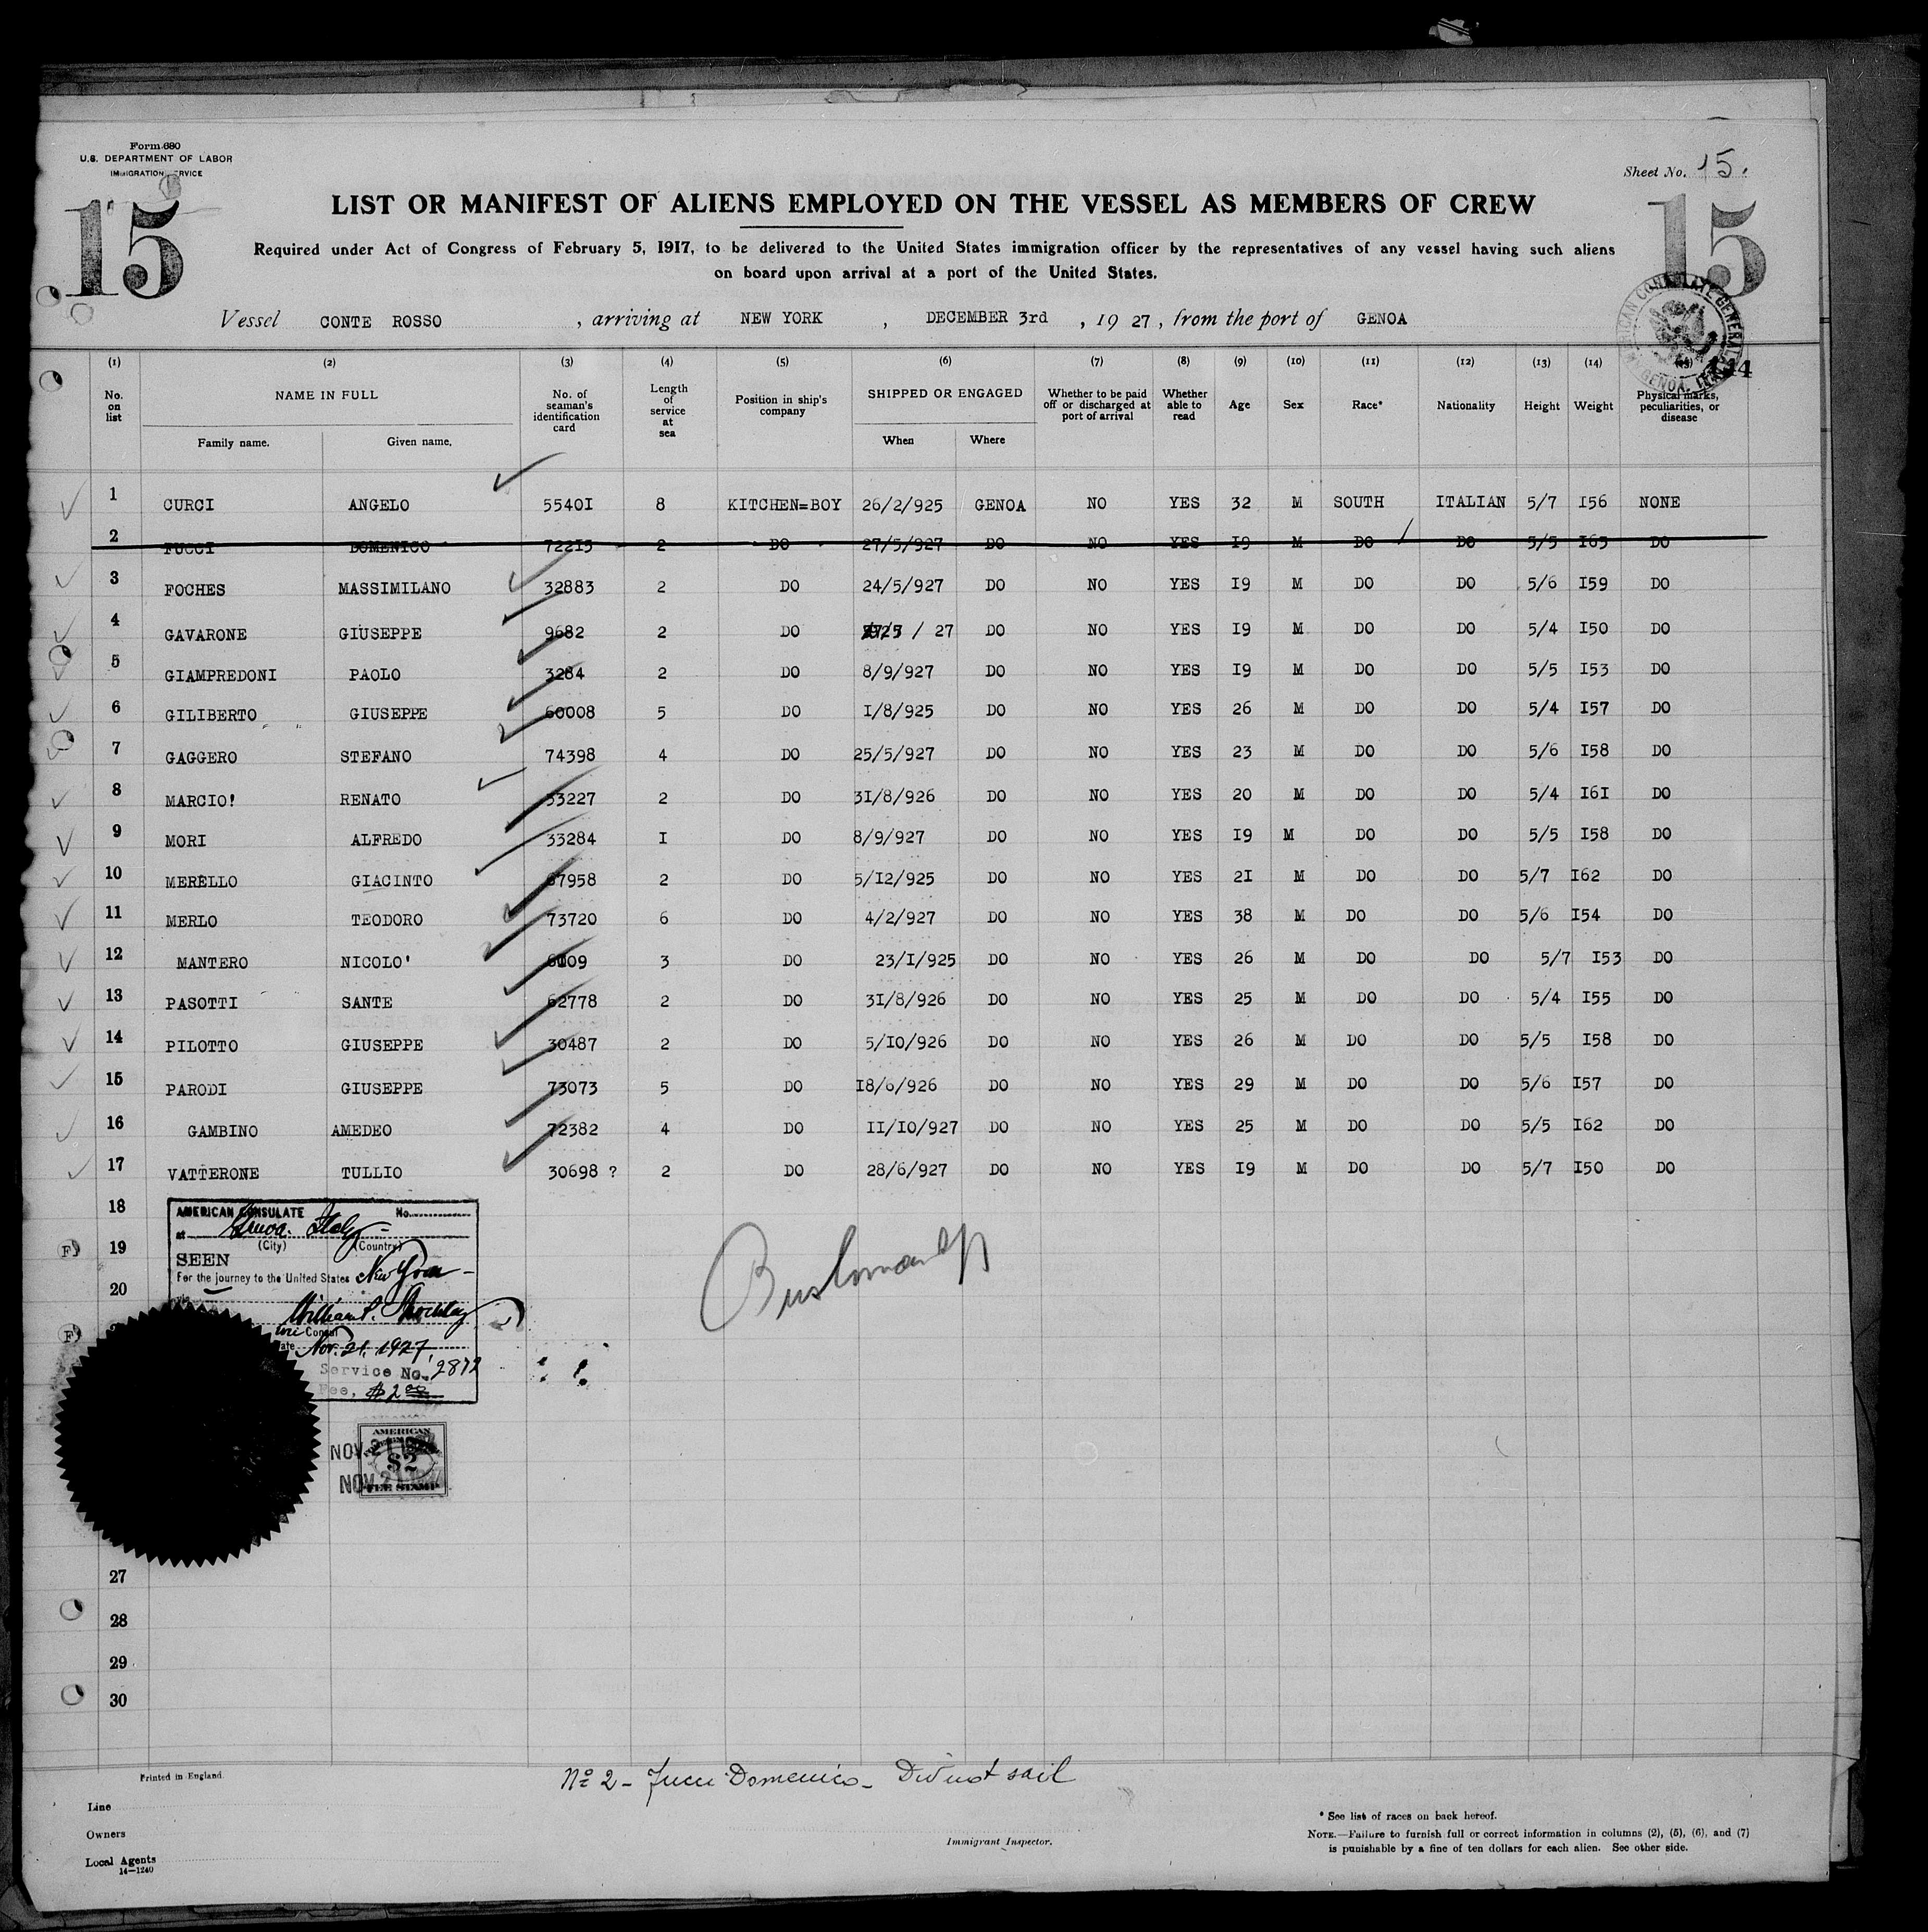 Form 680
U.S. DEPARTMENT OF LABOR
IMMIGRATION SERVICE
Sheet No. 15.
15
15
LIST OR MANIFEST OF ALIENS EMPLOYED ON THE VESSEL AS MEMBERS OF CREW
Required under Act of Congress of February 5, 1917, to be delivered to the United States immigration officer by the representatives of any vessel having such aliens
on board upon arrival at a port of the United States.
Vessel CONTE ROSSO , arriving at NEW YORK , DECEMBER 3rd , 19 27 , from the port of GENOA
AMERICAN CONSULATE GENERAL GENOA, ITALY
(1) (2) (3) (4) (5) (6) (7) (8) (9) (10) (11) (12) (13) (14)
No. on list
NAME IN FULL
Family name. Given name.
No. of seaman's identification card
Length of service at sea
Position in ship's company
SHIPPED OR ENGAGED
When Where
Whether to be paid off or discharged at port of arrival
Whether able to read
Age
Sex
Race*
Nationality
Height
Weight
Physical marks, peculiarities, or disease
1 CURCI ANGELO 5540I 8 KITCHEN=BOY 26/2/925 GENOA NO YES 32 M SOUTH ITALIAN 5/7 I56 NONE
2 FUCCI DOMENICO 72215 2 DO 27/5/927 DO NO YES I9 M DO DO 5/5 I65 DO
3 FOCHES MASSIMILANO 32883 2 DO 24/5/927 DO NO YES I9 M DO DO 5/6 I59 DO
4 GAVARONE GIUSEPPE 9682 2 DO / 27 DO NO YES I9 M DO DO 5/4 I50 DO
5 GIAMPREDONI PAOLO 3284 2 DO 8/9/927 DO NO YES I9 M DO DO 5/5 I53 DO
6 GILIBERTO GIUSEPPE 60008 5 DO I/8/925 DO NO YES 26 M DO DO 5/4 I57 DO
7 GAGGERO STEFANO 74398 4 DO 25/5/927 DO NO YES 23 M DO DO 5/6 I58 DO
8 MARCIO! RENATO 33227 2 DO 3I/8/926 DO NO YES 20 M DO DO 5/4 I6I DO
9 MORI ALFREDO 33284 I DO 8/9/927 DO NO YES I9 M DO DO 5/5 I58 DO
10 MERELLO GIACINTO 67958 2 DO 5/I2/925 DO NO YES 2I M DO DO 5/7 I62 DO
11 MERLO TEODORO 73720 6 DO 4/2/927 DO NO YES 38 M DO DO 5/6 I54 DO
12 MANTERO NICOLO' 3 DO 23/I/925 DO NO YES 26 M DO DO 5/7 I53 DO
13 PASOTTI SANTE 62778 2 DO 3I/8/926 DO NO YES 25 M DO DO 5/4 I55 DO
14 PILOTTO GIUSEPPE 30487 2 DO 5/IO/926 DO NO YES 26 M DO DO 5/5 I58 DO
15 PARODI GIUSEPPE 73073 5 DO I8/6/926 DO NO YES 29 M DO DO 5/6 I57 DO
16 GAMBINO AMEDEO 72382 4 DO II/IO/927 DO NO YES 25 M DO DO 5/5 I62 DO
17 VATTERONE TULLIO 30698 ? 2 DO 28/6/927 DO NO YES I9 M DO DO 5/7 I50 DO
18
19
20
AMERICAN CONSULATE No.
at Genoa. Italy
(City) (Country)
SEEN
For the journey to the United States New York
Consul
Date Nov. 21, 1927
Service No. 2872
Fee, $2.00
AMERICAN
$2
FEE STAMP
NOV 21 1927
NOV 21 1927
27
28
29
30
Printed in England.
No 2 - Fucci Domenico - Did not sail
Line
Owners
Local Agents
14—1240
Immigrant Inspector.
* See list of races on back hereof.
NOTE.—Failure to furnish full or correct information in columns (2), (5), (6), and (7)
is punishable by a fine of ten dollars for each alien. See other side.